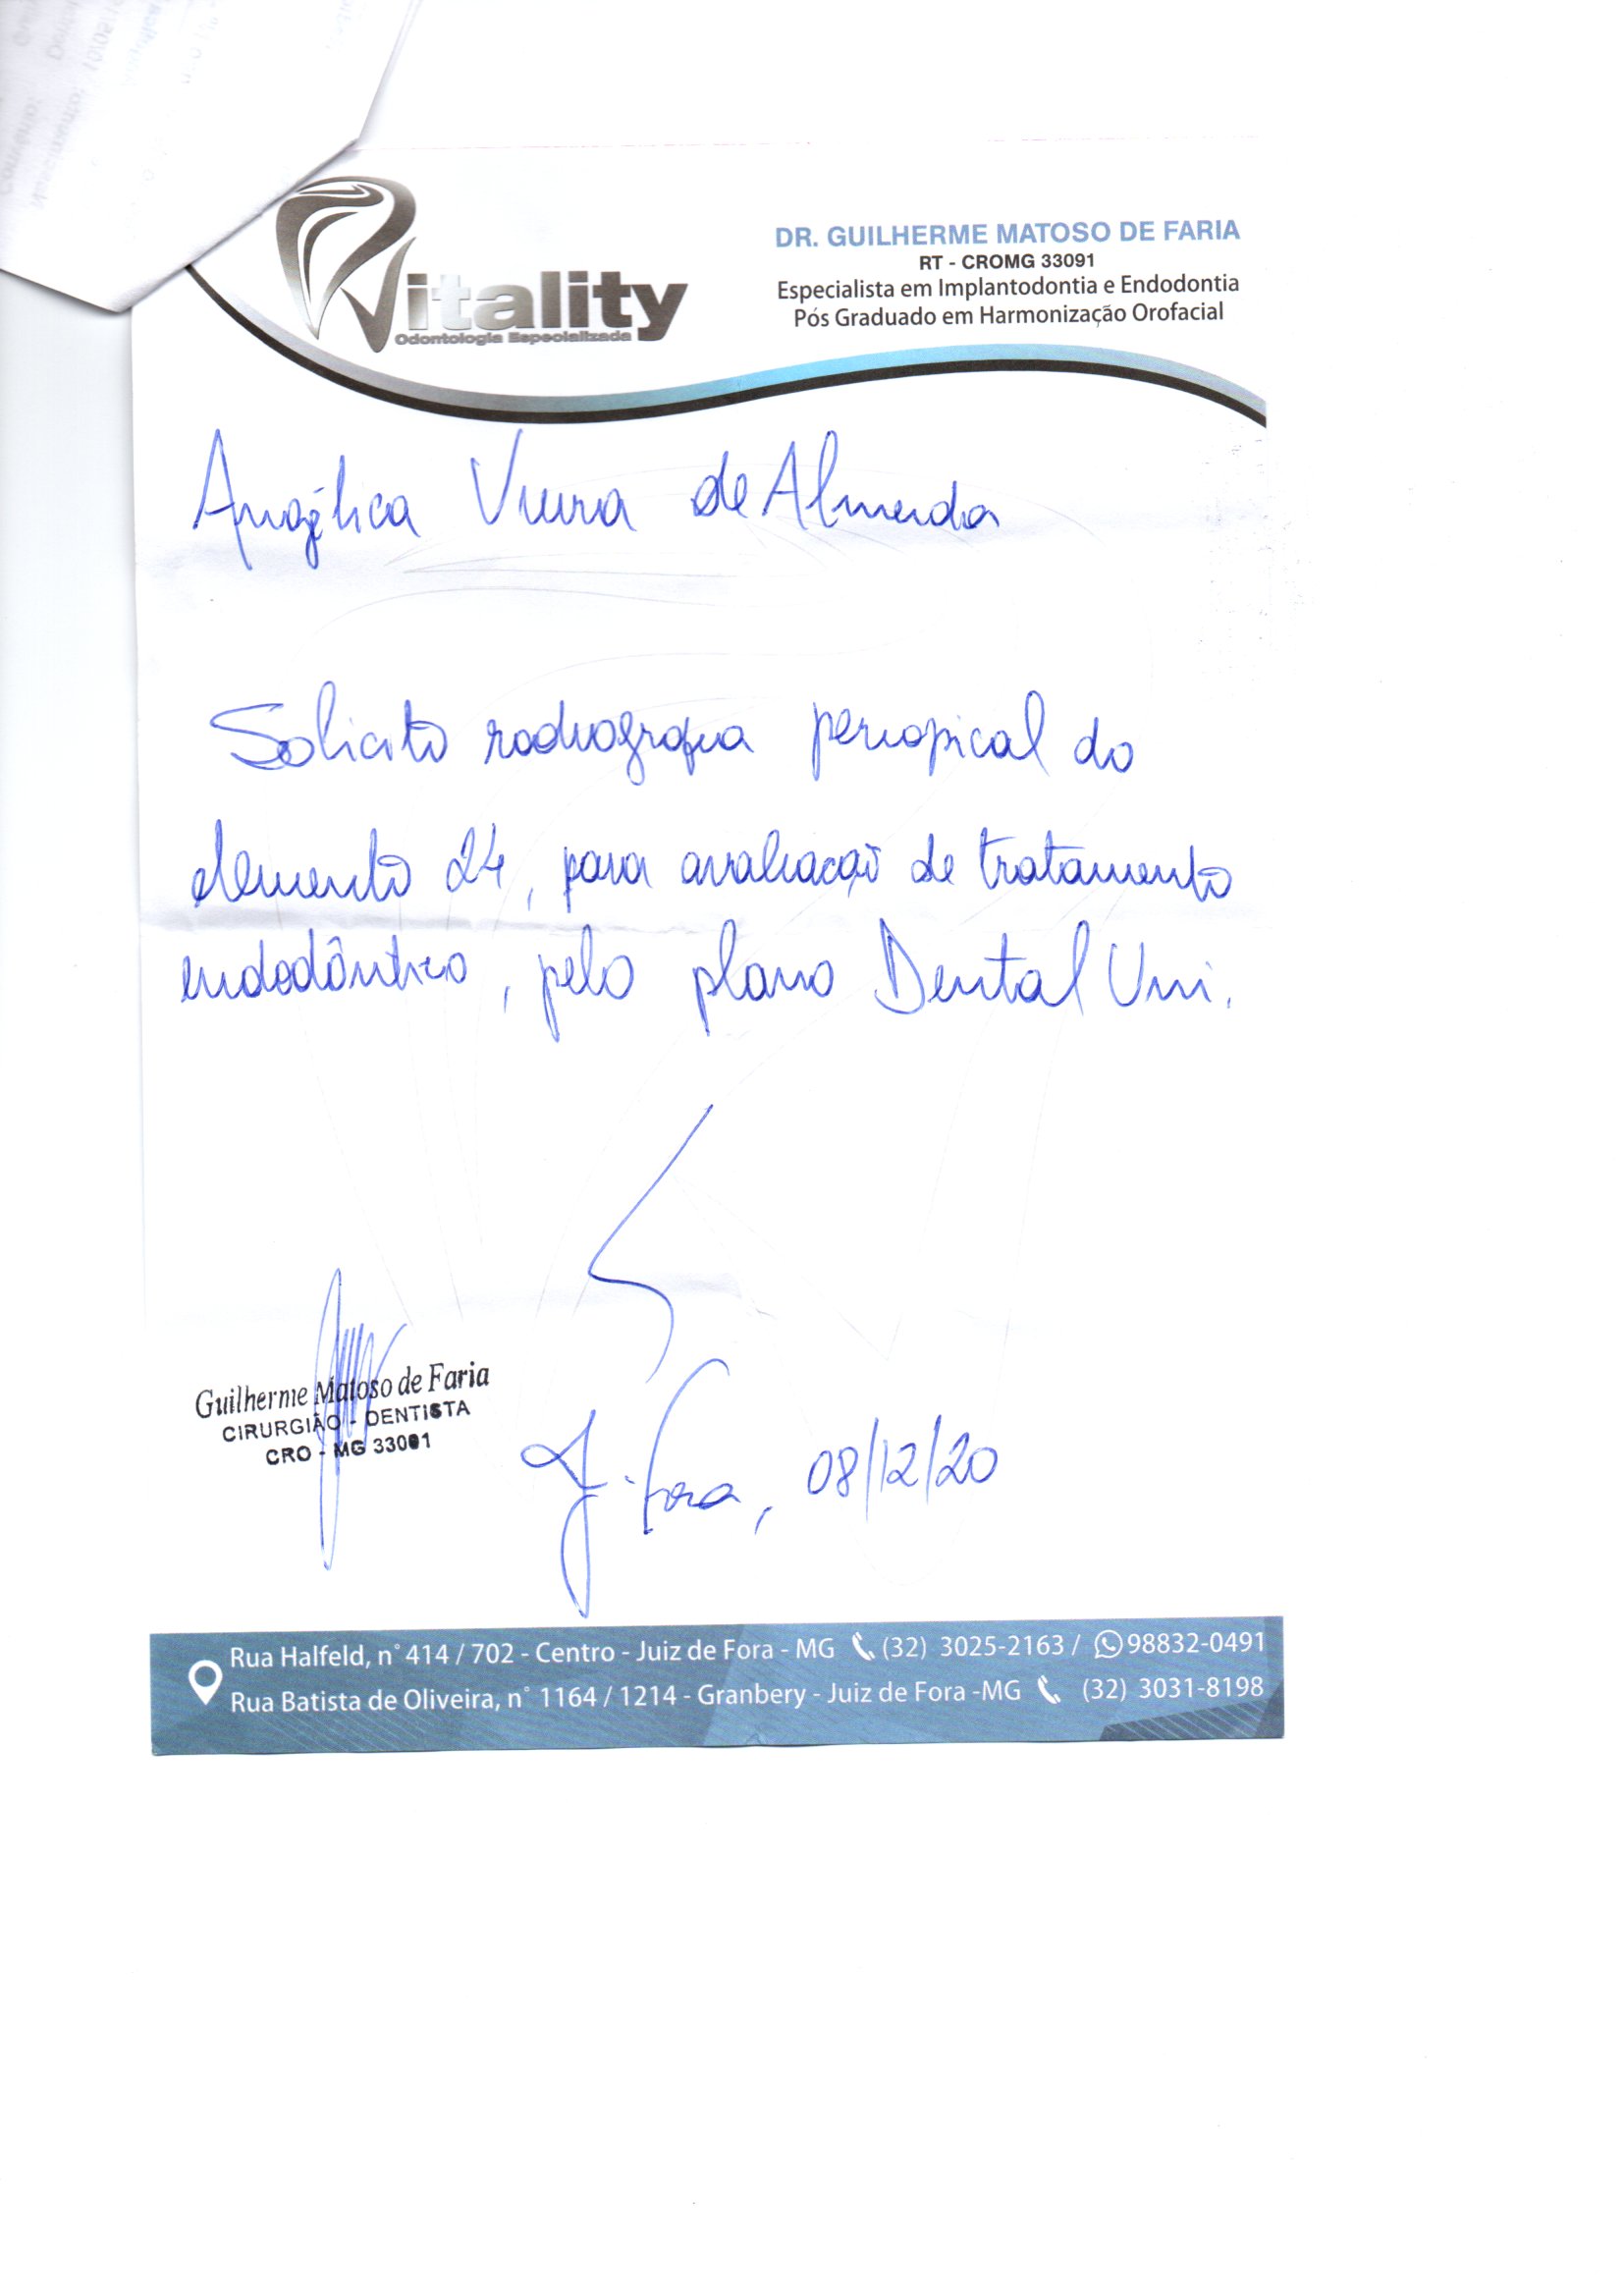 Vitality
Odontologia Especializada
DR. GUILHERME MATOSO DE FARIA
RT - CROMG 33091
Especialista em Implantodontia e Endodontia
Pós Graduado em Harmonização Orofacial
Angélica Vieira de Almeida
Solicito radiografia periapical do
elemento 24, para avaliação de tratamento
endodôntico, pelo plano Dental Uni.
Guilherme Matoso de Faria
CIRURGIÃO - DENTISTA
CRO - MG 33091
J. Fora, 08/12/20
Rua Halfeld, n° 414 / 702 - Centro - Juiz de Fora - MG (32) 3025-2163 / 98832-0491
Rua Batista de Oliveira, n° 1164 / 1214 - Granbery - Juiz de Fora -MG (32) 3031-8198